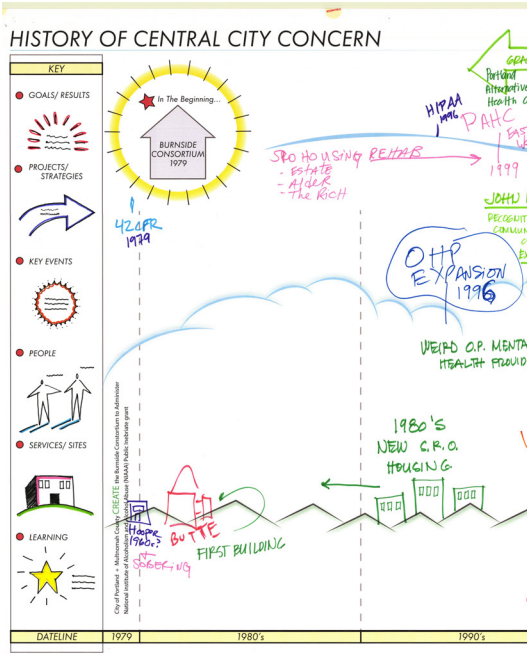 HISTORY OF CENTRAL CITY CONCERN
KEY
GOALS/ RESULTS
PROJECTS/
STRATEGIES
KEY EVENTS
PEOPLE
SERVICES/ SITES
LEARNING
In The Beginning...
BURNSIDE
CONSORTIUM
1979
42CFR
1979
SRO HOUSING REHAB
- ESTATE
- AldeR
- The RICH
HIPAA
1996
Portland
Alternative
Health
PAHC
1999
JOHN
OHP
EXPANSION
1996
WEIRD O.P. MENTA
HEALTH PROVID
1980's
NEW S.R.O.
HOUSING
City of Portland + Multnomah County CREATE the Burnside Consortium to Administer
National Institute of Alcoholism and Alcohol Abuse (NIAAA) Public Inebriate grant
Hooper
1960s?
SOBERING
BUTTE
FIRST BUILDING
DATELINE
1979
1980's
1990's